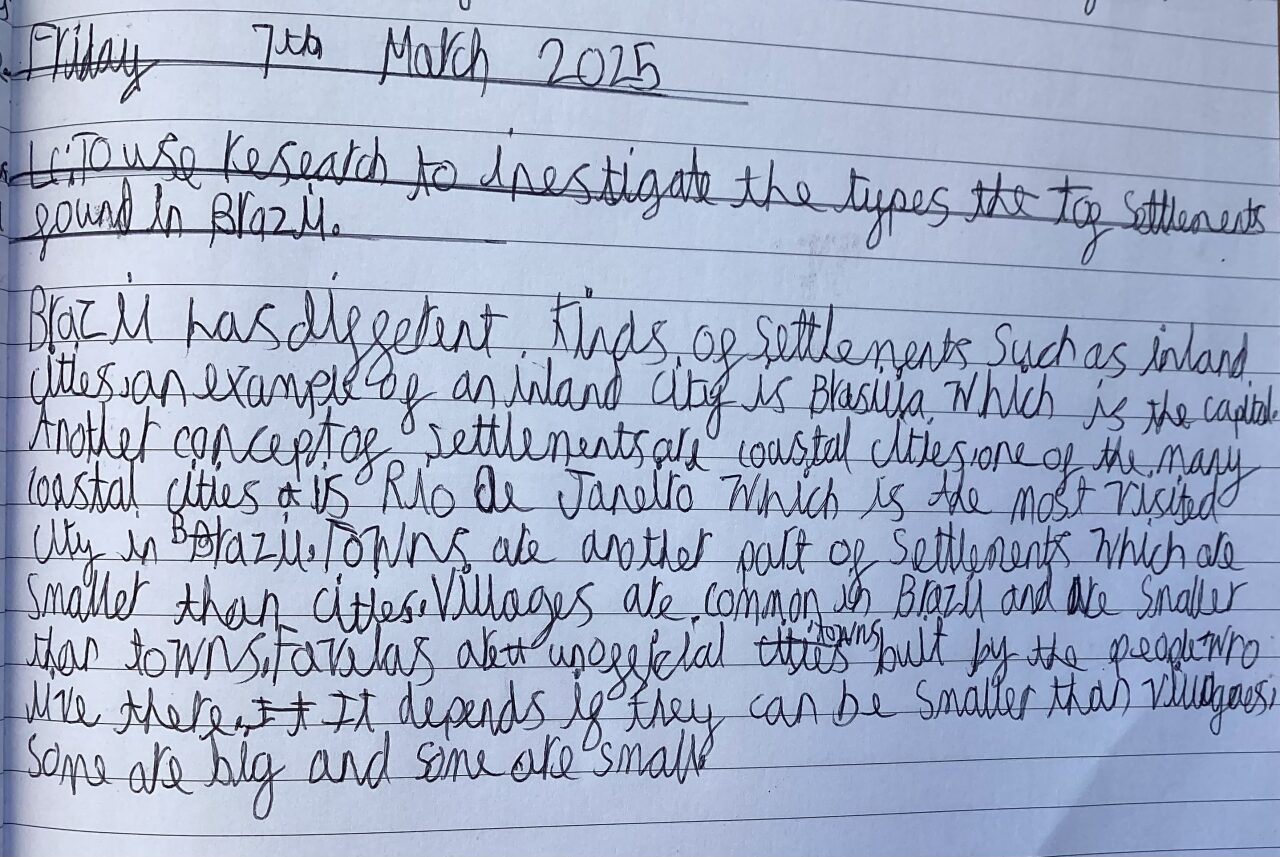 Friday 7th March 2025
LC: To use Research to inestigate the types the of settlements
found in Brazil.
Brazil has different kinds of settlements such as inland
cities, an example of an inland city is Brasilia which is the capital.
Another concept of settlements are coastal cities, one of the many
coastal cities is Rio De Janeiro which is the most visited
city in Brazil. Towns are another part of settlements which are
smaller than cities. Villages are common in Brazil and are smaller
than towns. Favelas are unofficial towns built by the people who
live there. It depends if they can be smaller than villages,
some are big and some are small